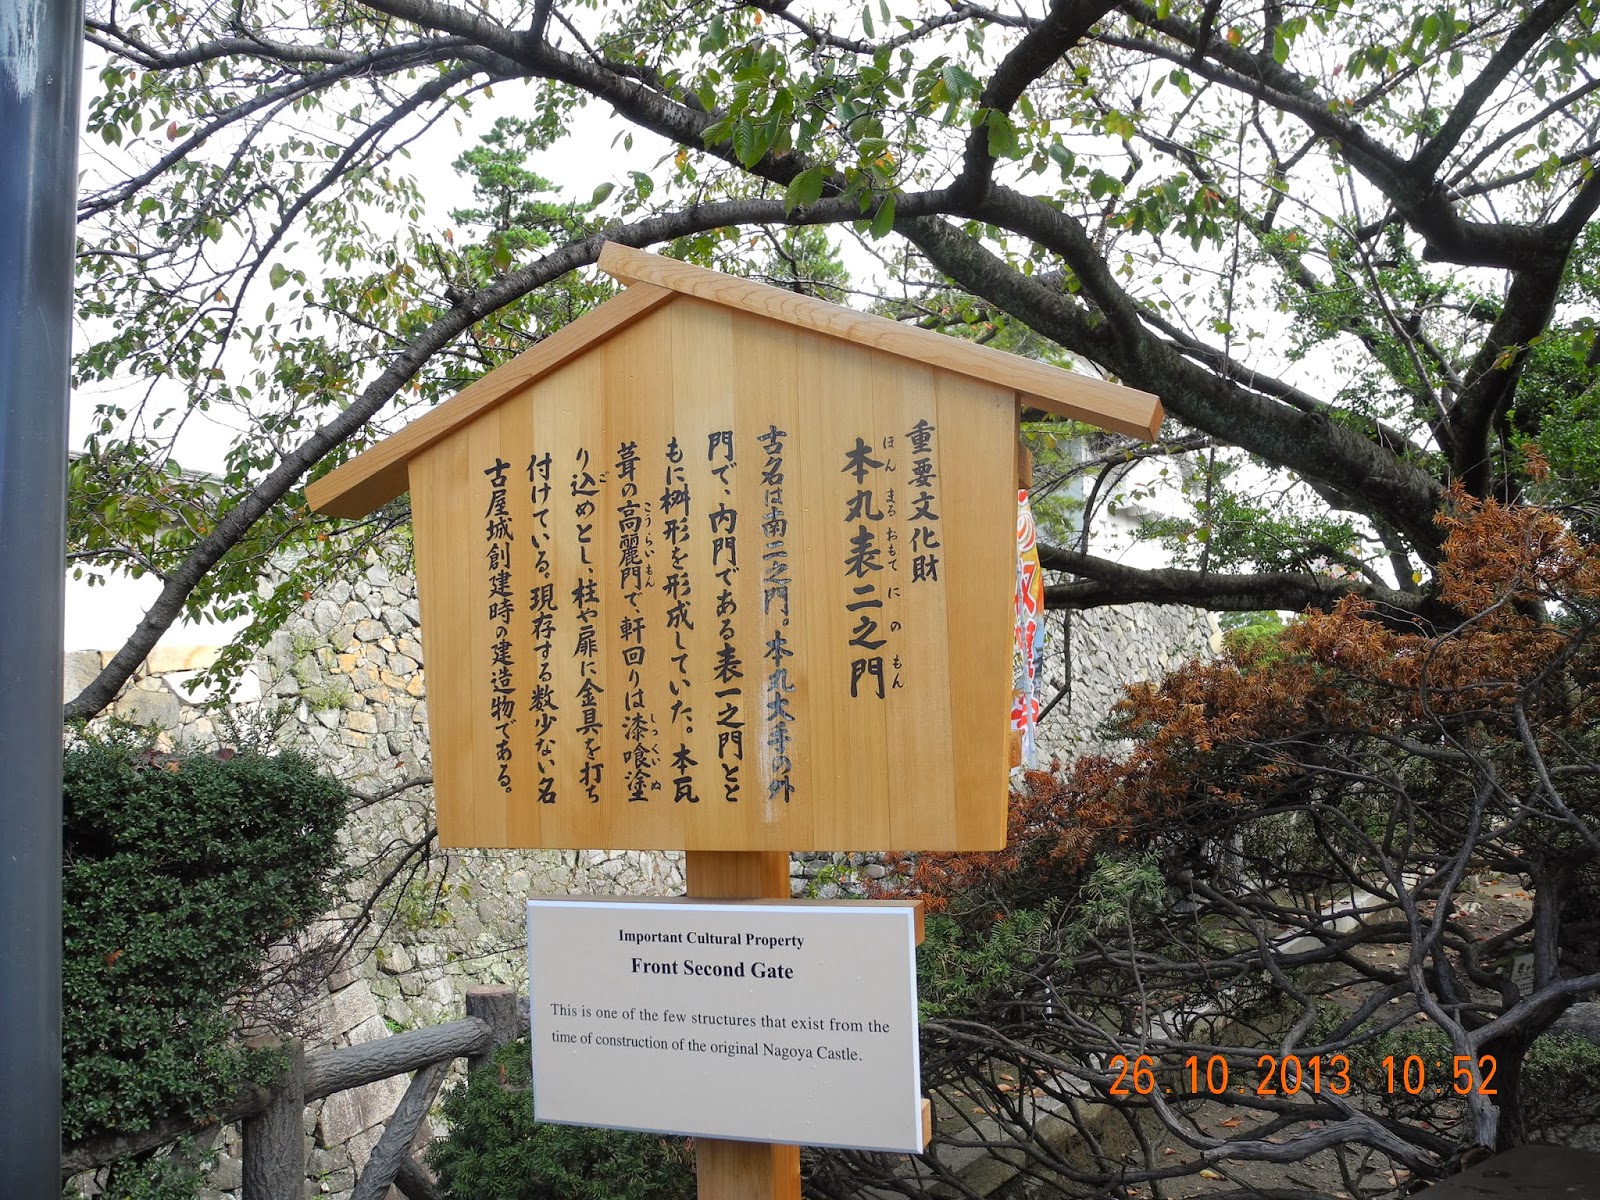 重要文化財
本丸表二之門
ほんまるおもてにのもん
古名は南二之門。本丸大手の外
門で、内門である表一之門とと
もに桝形を形成していた。本瓦
葺の高麗門で、軒回りは漆喰塗
こうらいもん
しっくいぬ
り込めとし、柱や扉に金具を打ち
ご
付けている。現存する数少ない名
古屋城創建時の建造物である。
Important Cultural Property
Front Second Gate
This is one of the few structures that exist from the
time of construction of the original Nagoya Castle.
26.10.2013 10:52